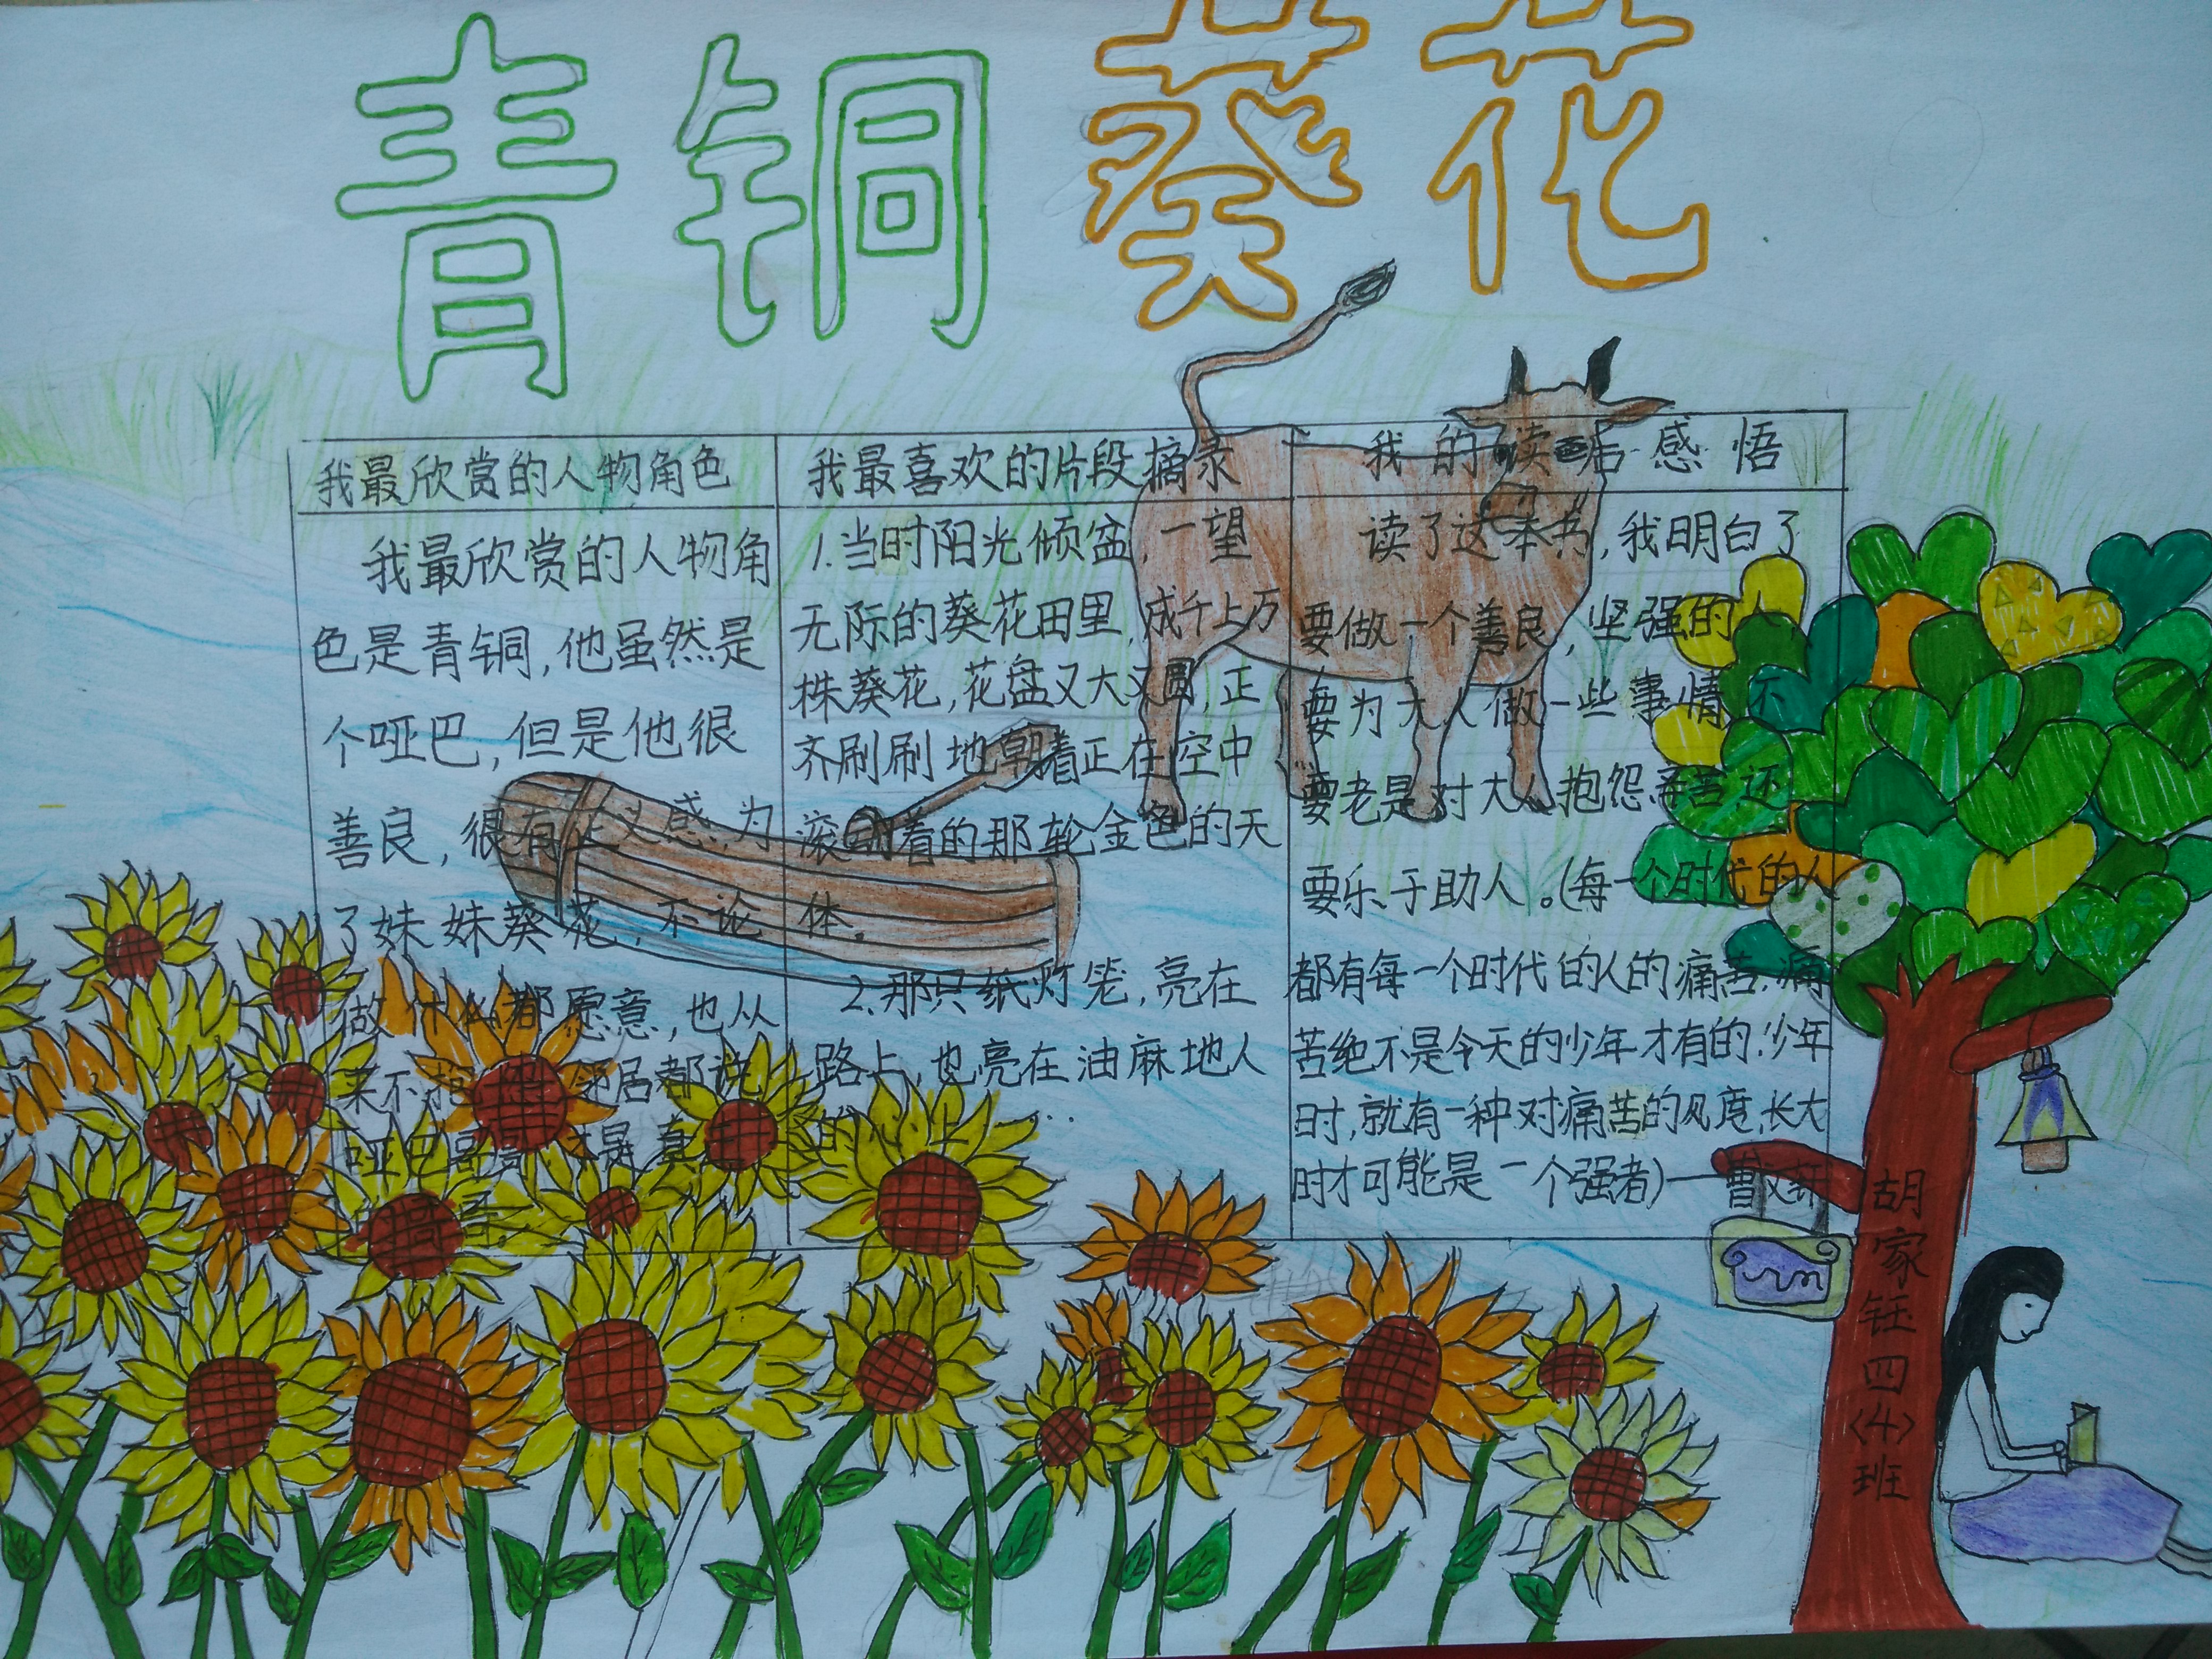 青铜葵花
我最欣赏的人物角色
我最欣赏的人物角
色是青铜,他虽然是
个哑巴,但是他很
善良,很有正义感,为
了妹妹葵花,不论
做什么都愿意,也从
来不抱怨 邻居都说
哑巴哥哥,才是真
哥哥。
我最喜欢的片段摘录
1.当时阳光倾盆,一望
无际的葵花田里,成千上万
株葵花,花盘又大又圆,正
齐刷刷地朝着正在空中
滚动着的那轮金色的天
体。
2.那只纸灯笼,亮在
路上,也亮在油麻地人
的心上……
我的读后感悟
读了这本书,我明白了
要做一个善良,坚强的人,
要为大人做一些事情 不
要老是对大人抱怨 还
要乐于助人。(每一个时代的人
都有每一个时代的人的痛苦,痛
苦绝不是今天的少年才有的.少年
时,就有一种对痛苦的风度,长大
时才可能是一个强者)——曹文轩
胡家钰四〈4〉班